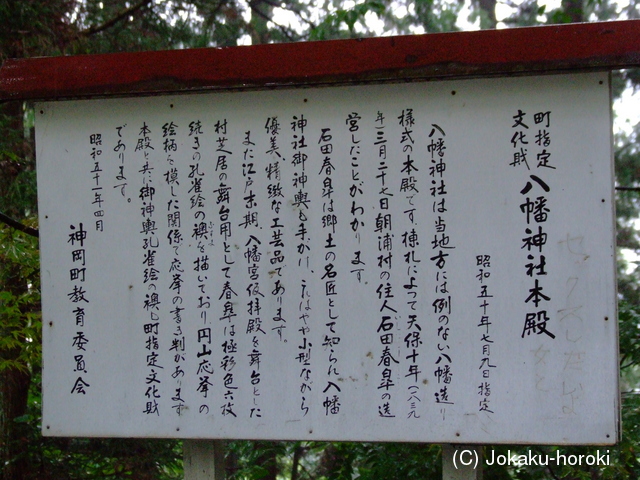 町指定
文化財
八幡神社本殿
昭和五十年七月九日指定
八幡神社は当地方には例のない八幡造り
様式の本殿です。棟札によって天保十年(一八三九
年)三月二十七日朝浦村の住人石田春皐の造
営したことがわかります。
石田春皐は郷土の名匠として知られ、八幡
神社御神輿も手がけ、これはやや小型ながら
優美、精緻な工芸品であります。
また江戸末期、八幡宮仮拝殿を舞台とした
村芝居の舞台用として春皐は極彩色六枚
続きの孔雀絵の襖を描いており円山応挙の
絵柄を模した関係で応挙の書き判があります
本殿と共に御神輿孔雀絵の襖も町指定文化財
であります。
昭和五十一年四月
神岡町教育委員会
(C) Jokaku-horoki